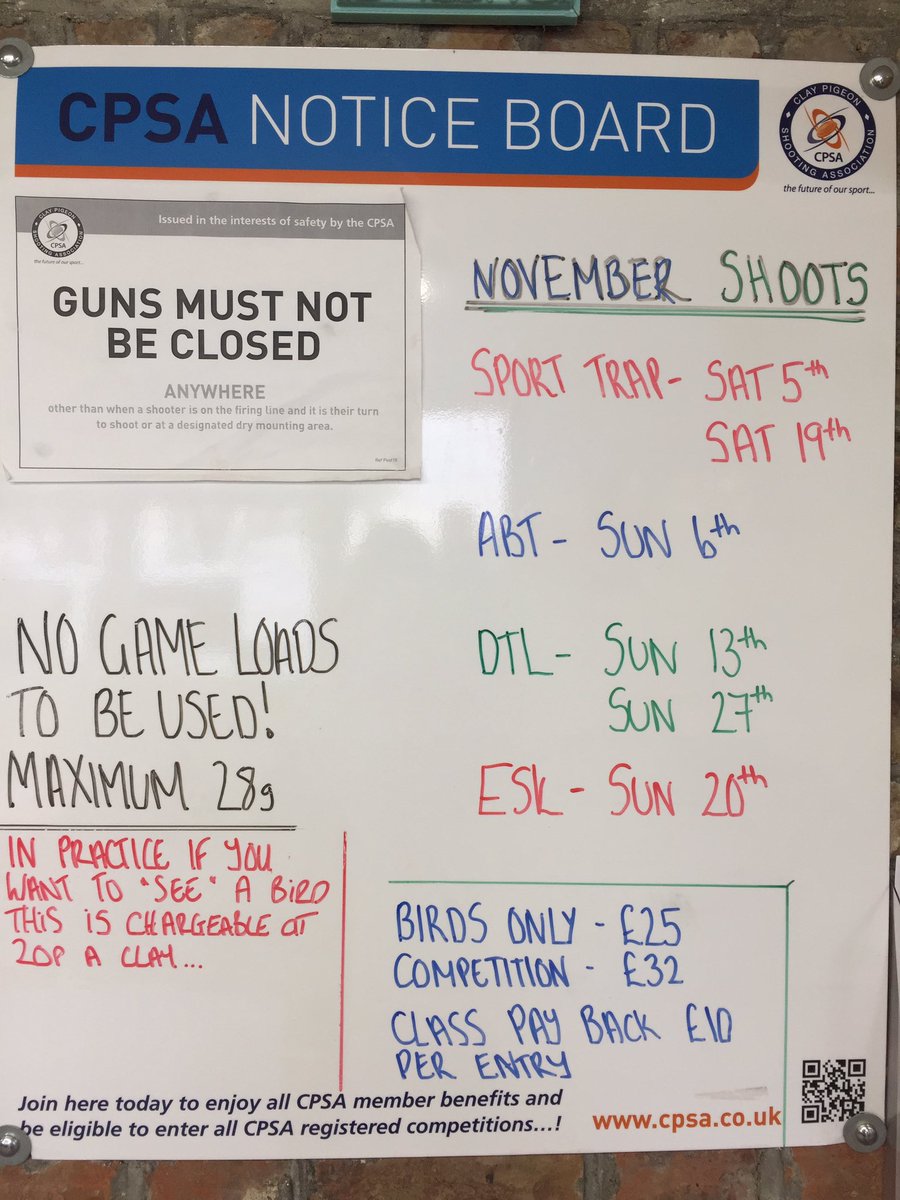 CPSA NOTICE BOARD
CLAY PIGEON SHOOTING ASSOCIATION
CPSA
the future of our sport...
CLAY PIGEON SHOOTING ASSOCIATION
CPSA
the future of our sport...
Issued in the interests of safety by the CPSA
GUNS MUST NOT
BE CLOSED
ANYWHERE
other than when a shooter is on the firing line and it is their turn
to shoot or at a designated dry mounting area.
NOVEMBER SHOOTS
SPORT TRAP- SAT 5th
SAT 19th
ABT - SUN 6th
DTL - SUN 13th
SUN 27th
ESK - SUN 20th
NO GAME LOADS
TO BE USED!
MAXIMUM 28g
IN PRACTICE IF YOU
WANT TO "SEE" A BIRD
THIS IS CHARGEABLE AT
20P A CLAY...
BIRDS ONLY - £25
COMPETITION - £32
CLASS PAY BACK £10
PER ENTRY
Join here today to enjoy all CPSA member benefits and
be eligible to enter all CPSA registered competitions...!
www.cpsa.co.uk